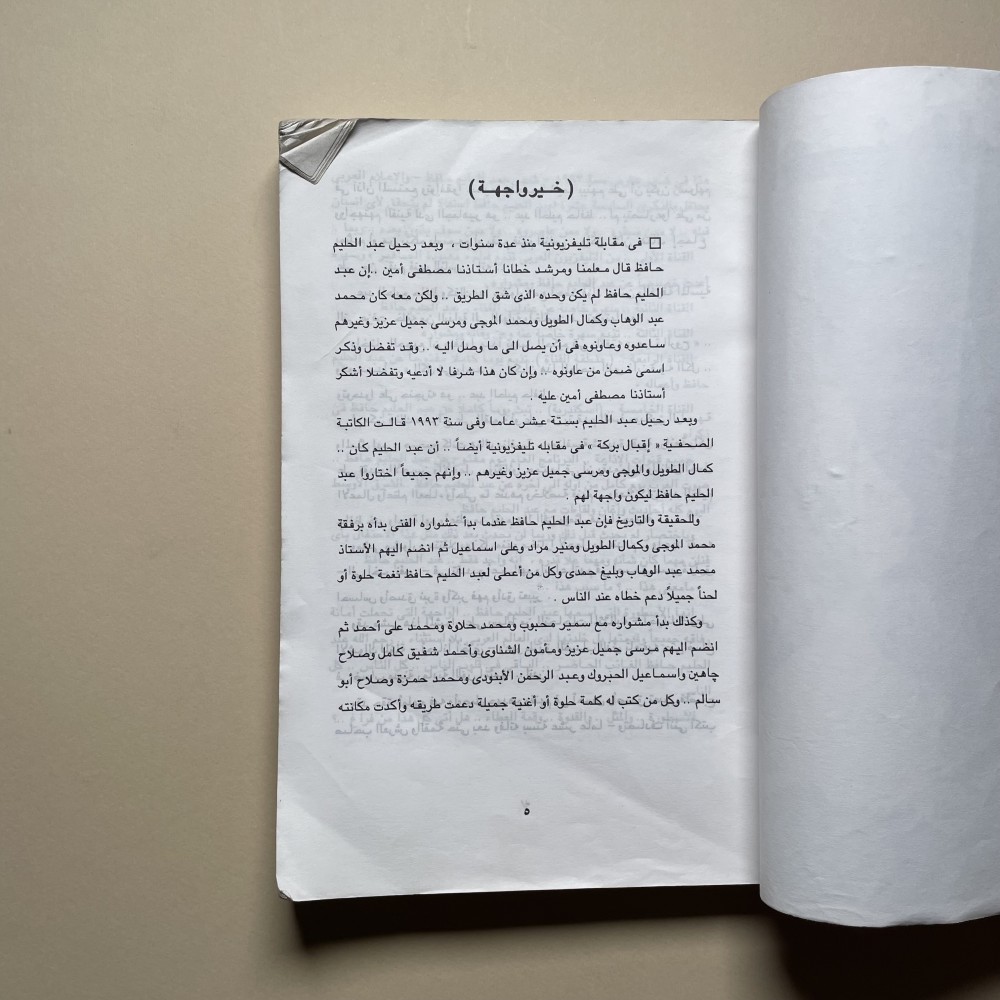 (خـيـر واجهـة)
□ فى مقابلة تليفزيونية منذ عدة سنوات ، وبعد رحيل عبد الحليم
حافظ قال معلمنا ومرشد خطانا أستاذنا مصطفى أمين ..إن عبد
الحليم حافظ لم يكن وحده الذى شق الطريق .. ولكن معه كان محمد
عبد الوهاب وكمال الطويل ومحمد الموجى ومرسى جميل عزيز وغيرهم
ساعدوه وعاونوه فى أن يصل الى ما وصل اليه .. وقد تفضل وذكر
اسمى ضمن من عاونوه .. وإن كان هذا شرفا لا أدعيه وتفضلا أشكر
أستاذنا مصطفى أمين عليه .
وبعد رحيل عبد الحليم بستة عشر عاما وفى سنة ١٩٩٣ قالت الكاتبة
الصحفية « إقبال بركة » فى مقابله تليفزيونية أيضاً .. أن عبد الحليم كان ..
كمال الطويل والموجى ومرسى جميل عزيز وغيرهم .. وإنهم جميعاً اختاروا عبد
الحليم حافظ ليكون واجهة لهم .
وللحقيقة والتاريخ فإن عبد الحليم حافظ عندما بدأ مشواره الفنى بدأه برفقة
محمد الموجى وكمال الطويل ومنير مراد وعلى اسماعيل ثم انضم اليهم الأستاذ
محمد عبد الوهاب وبليغ حمدى وكل من أعطى لعبد الحليم حافظ نغمة حلوة أو
لحناً جميلاً دعم خطاه عند الناس .
وكذلك بدأ مشواره مع سمير محبوب ومحمد حلاوة ومحمد على أحمد ثم
انضم اليهم مرسى جميل عزيز ومأمون الشناوى وأحمد شفيق كامل وصلاح
چاهين واسماعيل الحبروك وعبد الرحمن الأبنودى ومحمد حمزة وصلاح أبو
سالم .. وكل من كتب له كلمة حلوة أو أغنية جميلة دعمت طريقه وأكدت مكانته
٥